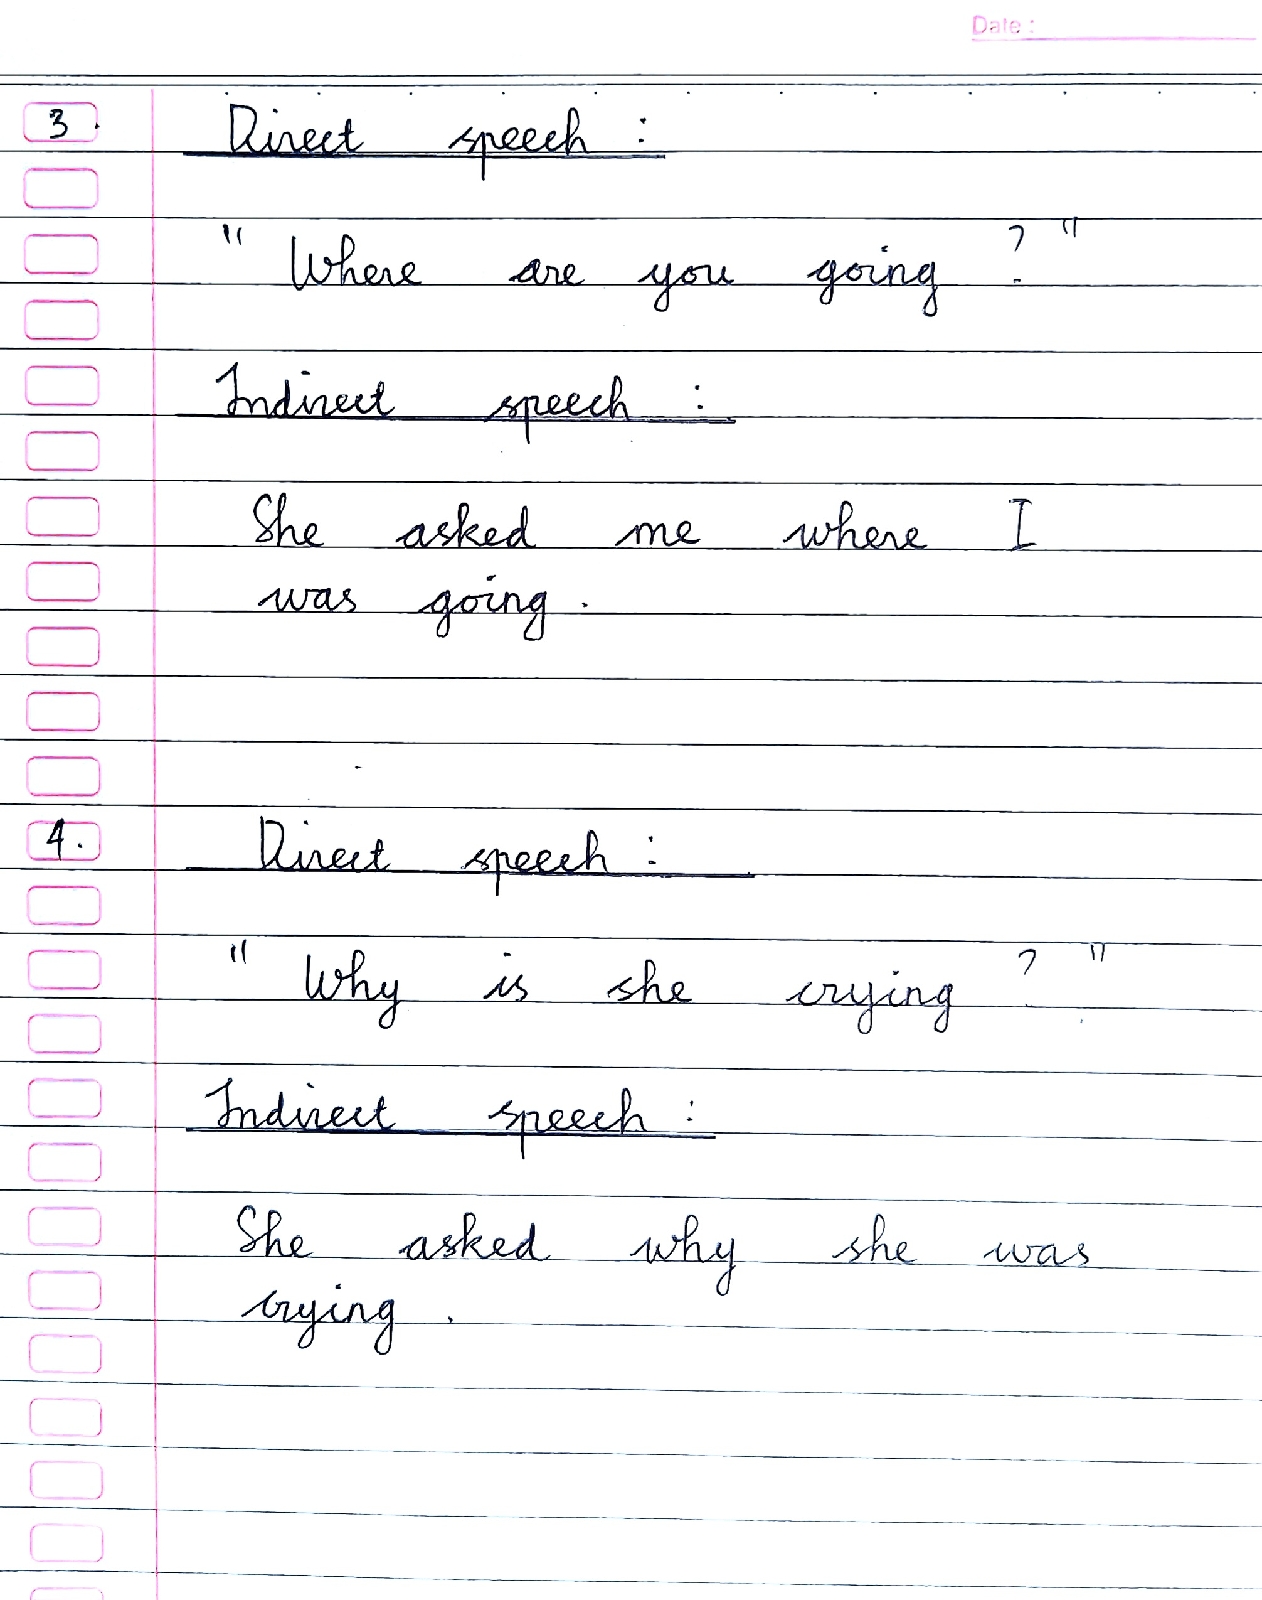 Date :
3. Direct speech :
" Where are you going ? "
Indirect speech :
She asked me where I
was going.
4. Direct speech :
" Why is she crying ? "
Indirect speech :
She asked why she was
crying.